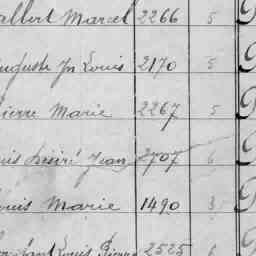 albert Marcel 2266 5
Auguste Jn Louis 2170 5
Pierre Marie 2267 5
Louis Désiré Jean 2707 6
Louis Marie 1490 3
Constant Louis Pierre 2525 6